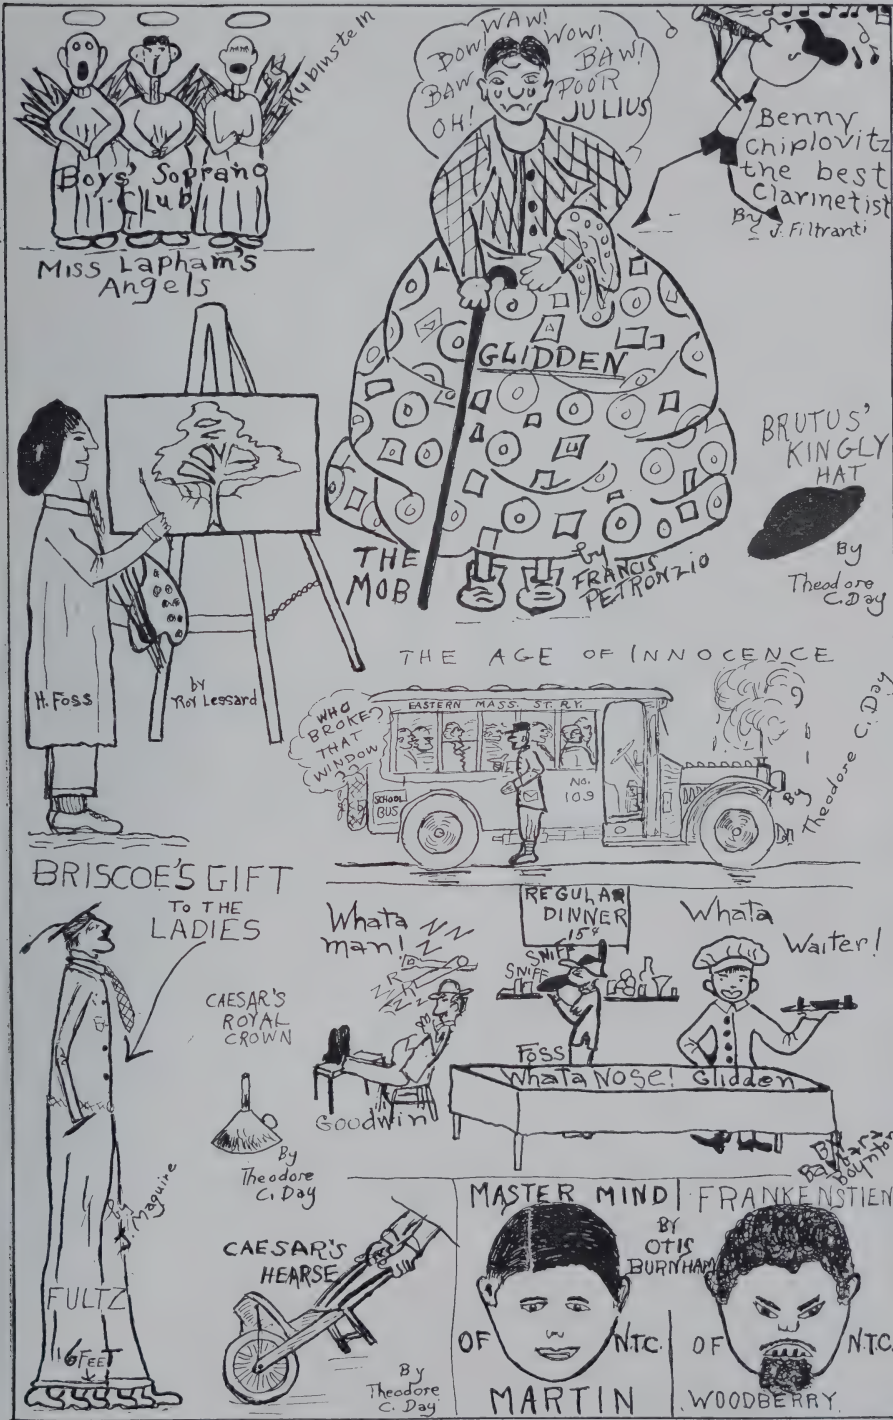 Boys' Soprano
Club
Miss Lapham's
Angels
WAW!
BOW!
WOW!
BAW
BAW!
OH!
POOR
JULIUS
GLIDDEN
THE
MOB
by
FRANCIS
PETRONZIO
Benny
Chiplovitz
the best
Clarinetist
By
J. Filtranti
BRUTUS'
KINGLY
HAT
By
Theodore
C. Day
H. Foss
by
Roy Lessard
THE AGE OF INNOCENCE
WHO
BROKE
THAT
WINDOW
??
EASTERN MASS. ST. RY.
SCHOOL
BUS
NO.
109
By
Theodore C. Day
BRISCOE'S GIFT
TO THE
LADIES
by
Maguire
FULTZ
16 FEET
CAESAR'S
ROYAL
CROWN
By
Theodore
C. Day
Whata
man!
Goodwin
REGULAR
DINNER
15¢
SNIFF
SNIFF
Foss
Whata
Waiter!
Whata Nose! Glidden
By
Barbara
Boynton
CAESAR'S
HEARSE
By
Theodore
C. Day
MASTER MIND
OF N.T.C.
MARTIN
BY
OTIS
BURNHAM
FRANKENSTIEN
OF N.T.C.
WOODBERRY